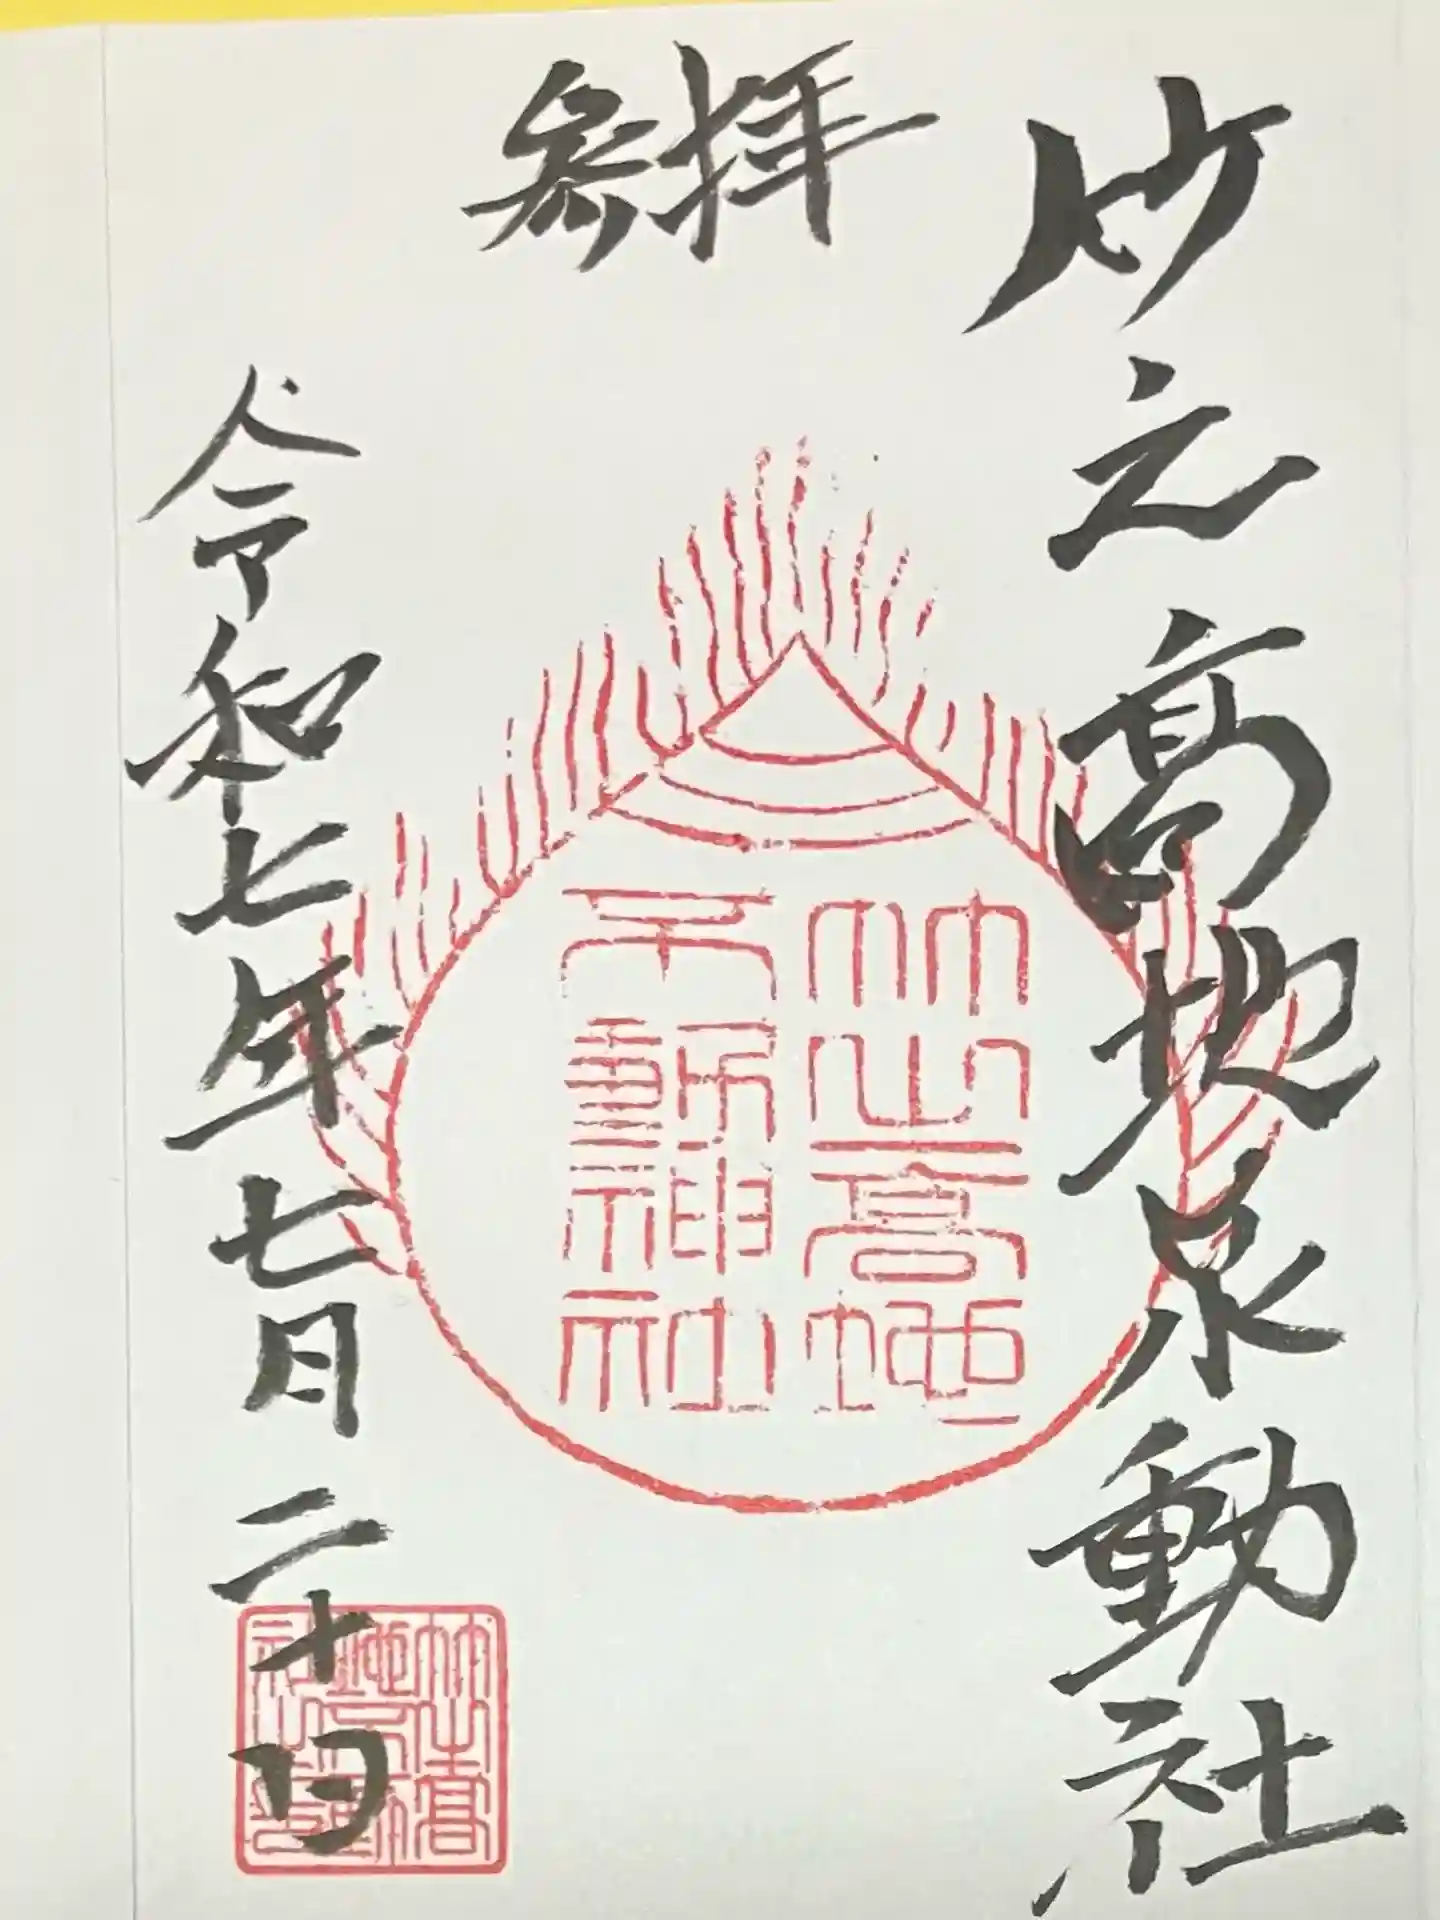 竹之高地不動社
参拝
竹之高地
不動神社
令和七年七月二十日
竹之高
地不動
社之印